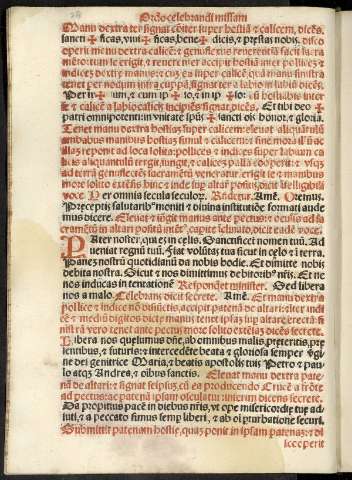 Ordo celebrandi missam
Manu dextra ter signat cõiter super hostiã & calicem, dicẽs.
sancti ✠ ficas, viui ✠ ficas, bene ✠ dicis, & prestas nobis. disco
operit manu dextra calicẽ: & genuflexus
& reuerenter accipit hostiã inter pollicem &
indicem dextrę manus: & cum ea super calicẽ quẽ manu sinistra
tenet per nodum infra cuppã, signat ter a labio in labiũ dicẽs.
Per ip ✠ um, & cum ip ✠ so, & in ip ✠ so.
& calicẽ a labio calicis incipiẽs signat, dicẽs. Et tibi deo ✠
patri omnipotenti: in vnitate spũs ✠ sancti ois honor, & gloria.
Tenet manu dextra hostiam super calicem: eleuat aliquãtulũ
ambabus manibus hostiã simul & calicem:
reponit ad loca solita: pollices & indices super labrum cali
cis aliquantulũ tergit, iungit, & calicẽ palla cooperit: &
ad terrã genuflectẽs sacramẽtũ veneratur. erigit se & manibus
more solito extẽsis hinc & inde sup altare positis, dicit
voce. Per omnia secula seculorũ. Amẽ. Oremus.
Preceptis salutarib9 moniti & diuina institutiõe formati aude
mus dicere. Eleuat & iũgit manus ante pectus: & oculis ad sa
cramẽtũ in altari positũ capite inclinato, dicit eadẽ voce.
Pater noster, qui es in celis. Sanctificet nomen tuũ. Ad
ueniat regnũ tuũ. Fiat volũtas tua sicut in celo & ĩ terra.
Panẽ nostrũ quotidianũ da nobis hodie. Et dimitte nobis
debita nostra. Sicut & nos dimittimus debitorib9 nr̃is. Et ne
nos inducas in tentationẽ Respondet minister. Sed libera
nos a malo. Celebrans dicit secrete. Amẽ. Et manu dextra
pollice & indice nõ disiũctis, accipit patenã de altari: & inter indi
cẽ & mediũ digitos dictę manus tenet ipsã sup altare erectã: si
nistrã vero tenet ante pectus more solito extẽsã, dicẽs secrete.
Libera nos quesumus dñe, ab omnibus malis, preteritis, pre
sentibus, & futuris: & intercedẽte beata & gloriosa semper vgi
ne dei genitrice Maria, & beatis apostolis tuis Petro & pau
lo atqz Andrea, & oibus sanctis. Eleuat manu dextra pate
nã de altari: & signat seipsũ cũ ea producendo Crucẽ a frõte
ad pectus: ac patenã ipsam osculatur: interim dicens secrete.
Da propitius pacẽ in diebus nr̃is, vt ope misericordię tuę ad
iuti, & a peccato simus semp liberi, & ab oi pturbatione securi.
Submittit patenam hostię, quã ponit in ipsam patenã: & di
scooperit